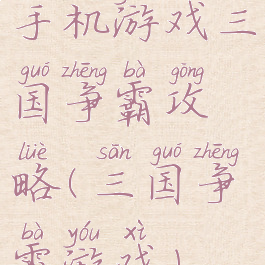 手机游戏三
guó zhēng bà gōng
国争霸攻
lüè sān guó zhēng
略(三国争
bà yóu xì
霸游戏)